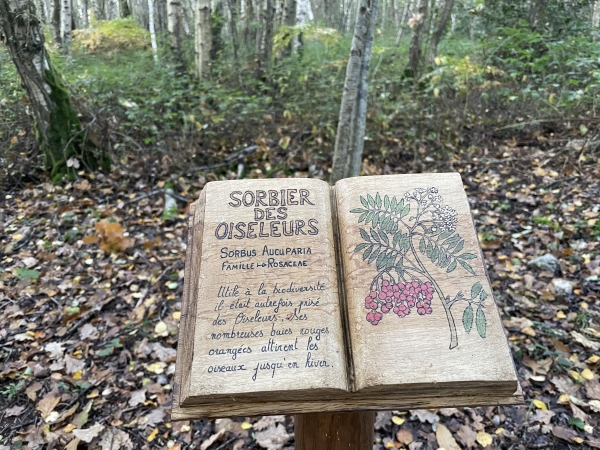 SORBIER
DES
OISELEURS
SORBUS AUCUPARIA
FAMILLE : ROSACEAE
Utile à la biodiversité
il était autrefois prisé
des Oiseleurs. Ses
nombreuses baies rouges
orangées attirent les
oiseaux jusqu'en hiver.